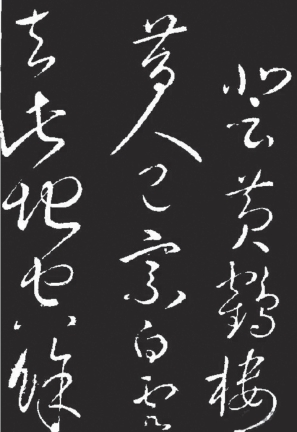 登黄鶴樓
昔人已乘白雲
去此地空餘